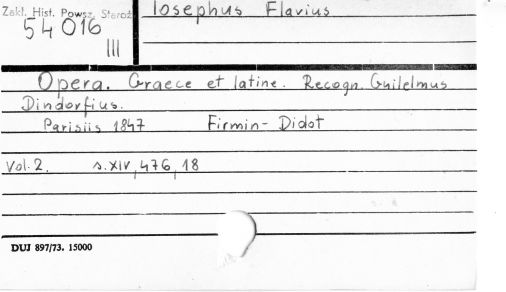 Zakł. Hist. Powsz. Staroż.
54 016
III
Iosephus Flavius
Opera. Graece et latine. Recogn. Guilelmus
Dindorfius.
Parisiis 1847 Firmin-Didot
Vol. 2. s. XIV, 476, 18
DUJ 897/73. 15000